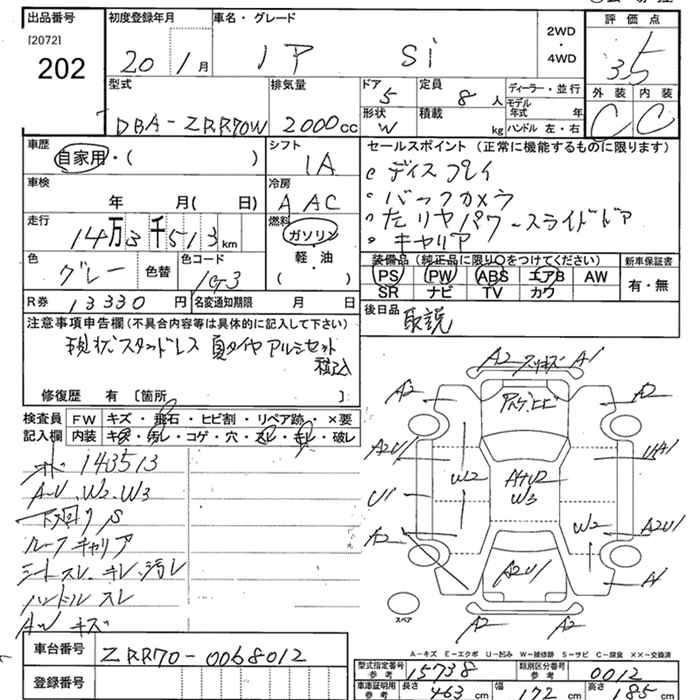 出品番号 初度登録年月 車名・グレード 評価点
[2072]
202
20 1月 ノア Si 2WD・4WD 3.5
型式 排気量 ドア 定員 ディーラー・並行 外装 内装
DBA-ZRR70W 2000cc 5 8人 モデル年式 年 C C
形状 W 積載 kg ハンドル 左・右
車歴 シフト セールスポイント(正常に機能するものに限ります)
自家用・( ) IA
ディスプレイ
車検 冷房
年 月( 日) A AC
バックカメラ
走行 燃料
14万3千513km ガソリン
左リヤパワースライドドア
軽・油
キャリア
色 色替 色コード ( )
グレー 1G3
装備品(純正品に限り○をつけてください) 新車保証書
PS PW ABS エアB AW 有・無
SR ナビ TV カワ
R券 13330円 名変通知期限 月 日
後日品 取説
注意事項申告欄(不具合内容等は具体的に記入して下さい)
現状スタッドレス 夏タイヤアルミセット
積込
修復歴 有 [箇所 ]
検査員記入欄 FW キズ・飛石・ヒビ割・リペア跡・×要
内装 キズ・汚レ・コゲ・穴・スレ・キレ・破レ
143513
A-U.W2.W3
下廻りS
ルーフキャリア
シートスレ.キレ.汚レ
ハンドルスレ
AWキズ
A2 スリキズ A1
A2 A2
A2U1 UA1
W2
U1 W3
W2 A2U1
A2
A2U1 A1
スペア A2 A2
A-キズ E-エクボ U-凹み W-補修跡 S-サビ C-腐食 XX-交換済
車台番号 ZRR70-0068012
型式指定番号 参考 15738 類別区分番号 参考 0012
登録番号
車庫証明用 参考 長さ 463cm 幅 172cm 高さ 185cm